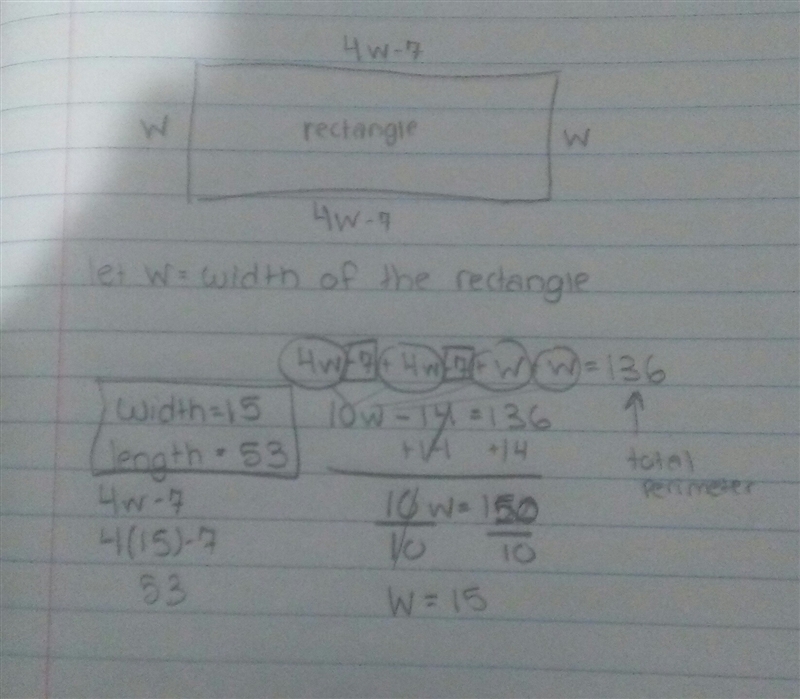 4W-7
W
rectangle
W
4W-7
let W = width of the rectangle
4W-7+4W-7+W+W=136
width=15
10W-14=136
length = 53
+14 +14
total
perimeter
4W-7
10W=150
4(15)-7
10 10
53
W=15